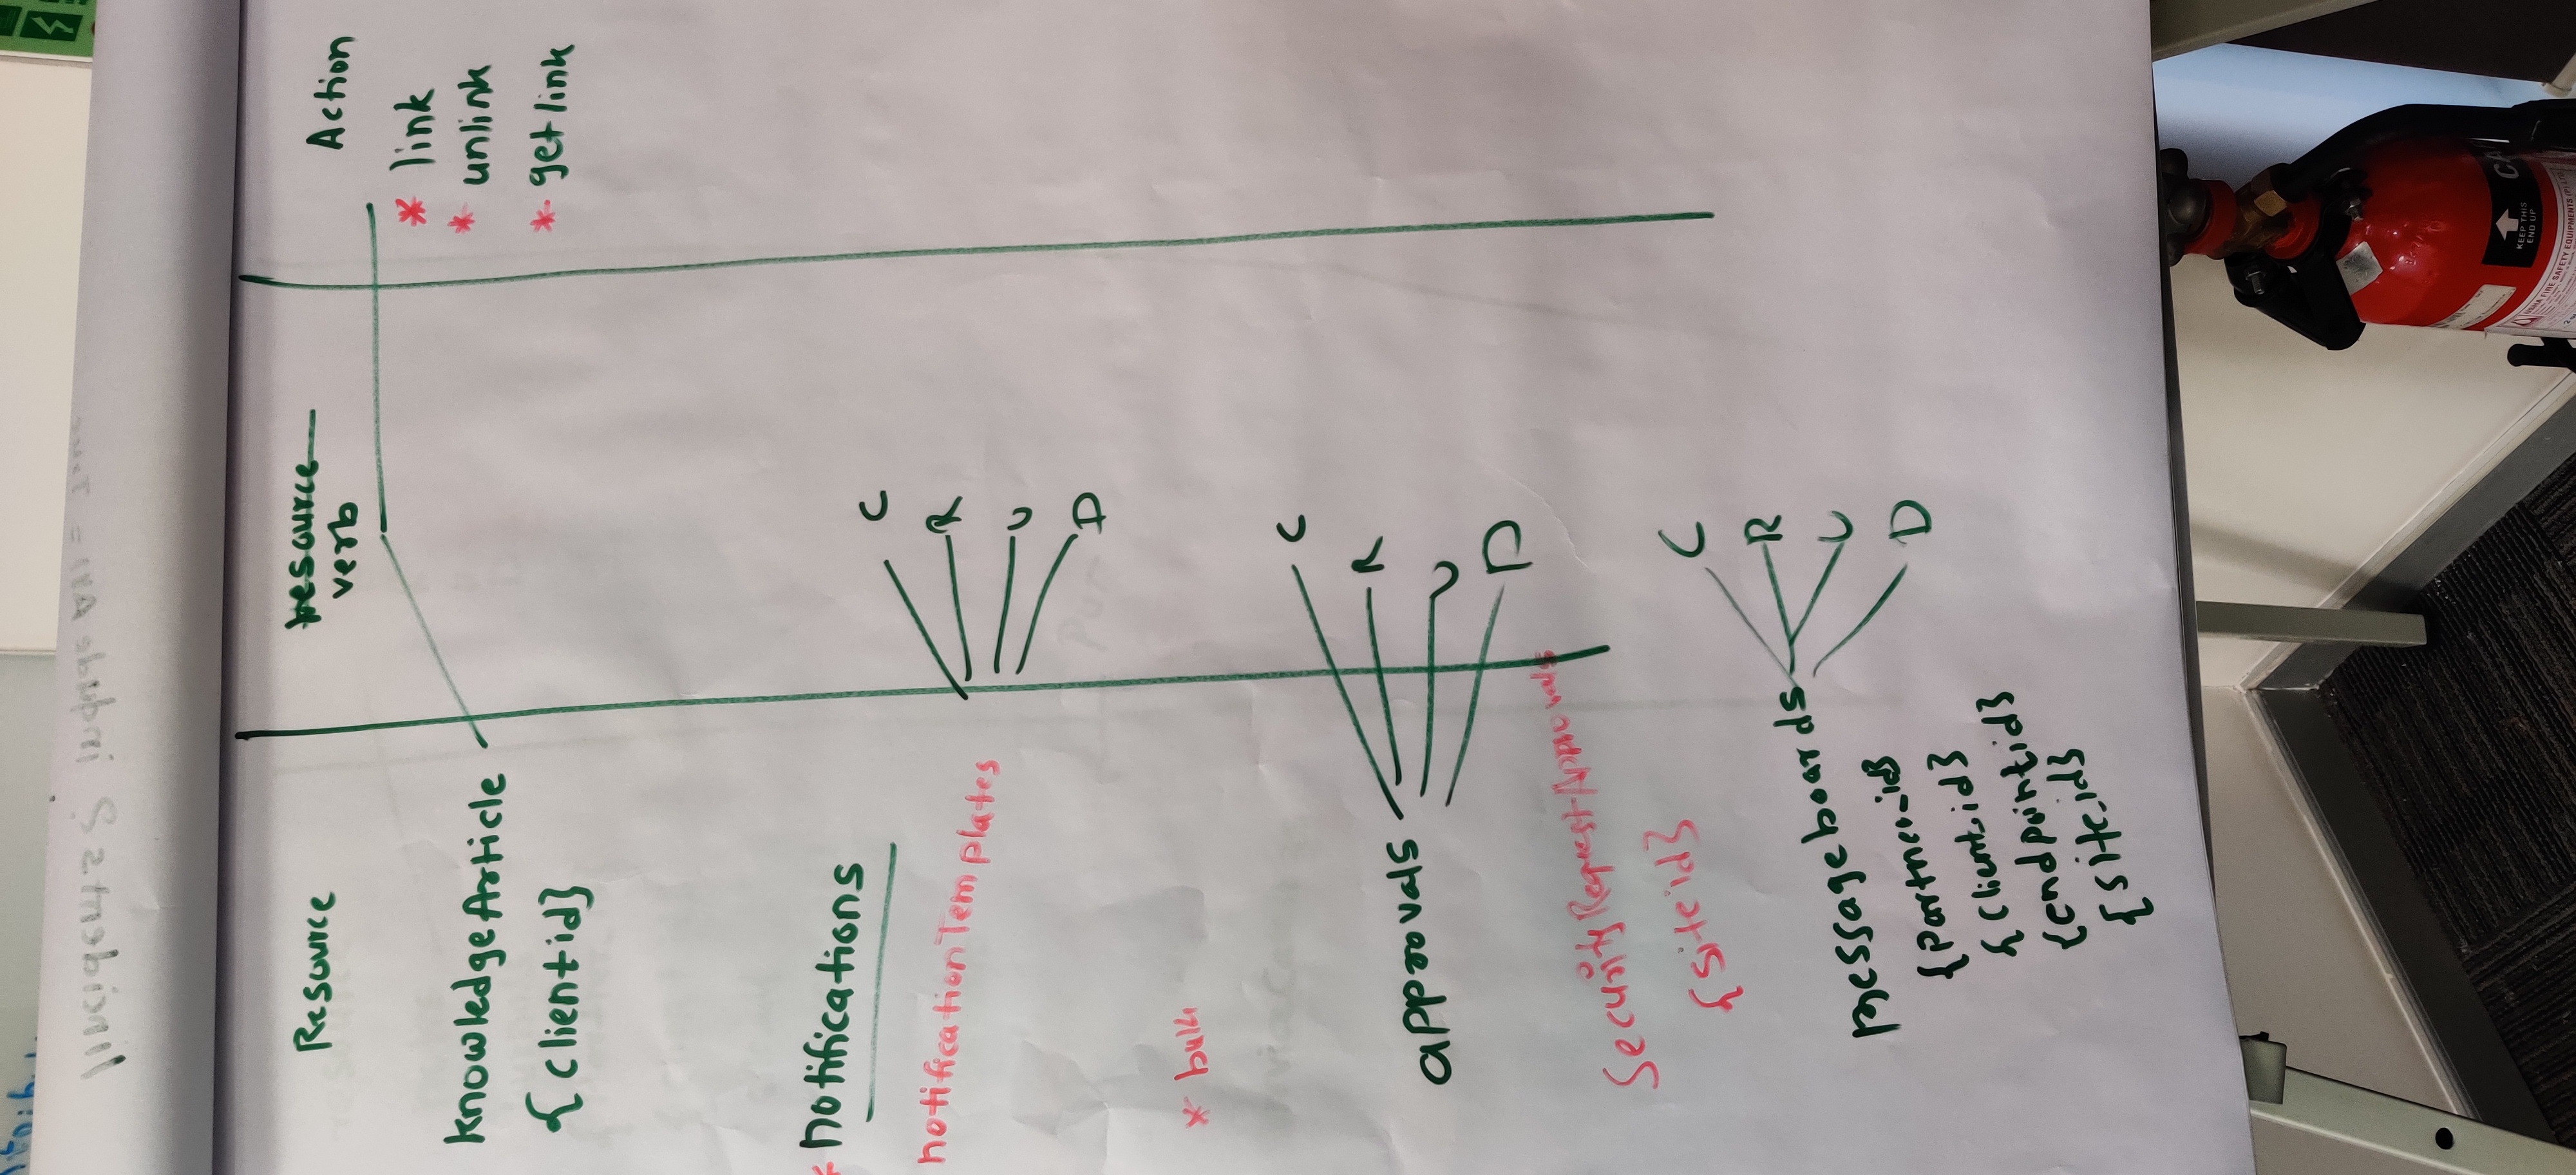 Resource
resource
verb
Action
KnowledgeArticle
{clientid}
* link
* unlink
* getlink
* notifications
notificationTemplates
C
R
U
D
* bulk
approvals
C
R
U
D
SecurityRequestApprovals
{siteid}
messageboards
C
R
U
D
{Partner_id}
{Client_id}
{endpointid}
{site_id}
KEEP THIS
END UP
FIRE SAFETY EQUIPMENTS (P) LTD